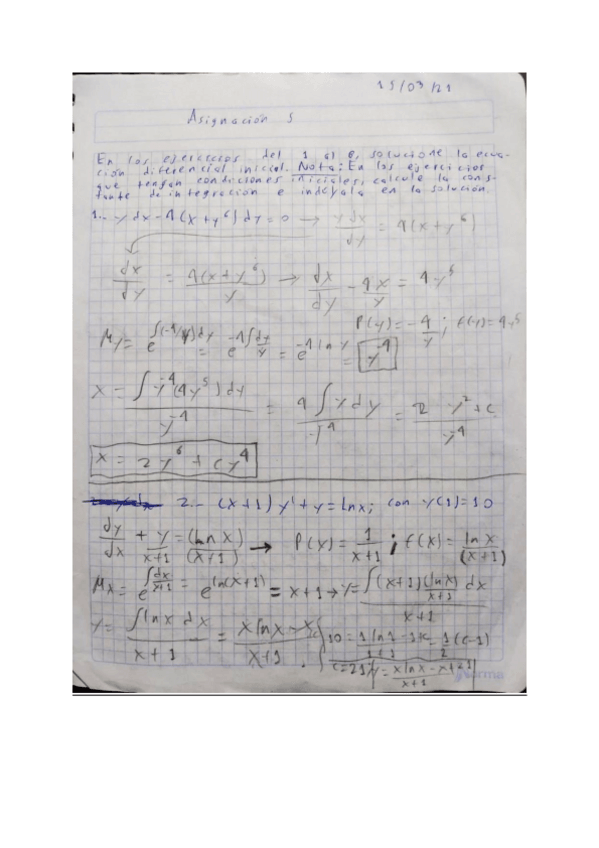 19/03/21
Asignación 5
En los ejercicios del 1 al 6, solucione la ecua-
ción diferencial inicial. Nota: En los ejercicios
que tengan condiciones iniciales, calcule la cons-
tante de integración e inclúyala en la solución.
1.- y dx - 4(x + y^6) dy = 0 → y dx/dy = 4(x + y^6)
dx/dy = 4(x + y^6)/y → dx/dy - 4x/y = 4y^5
P(y) = -4/y ; f(y) = 4y^5
My = e^∫(-4/y)dy = e^-4∫dy/y = e^-4 ln y = y^-4
x = ∫y^-4(4y^5)dy / y^-4 = 4∫y dy / y^-4 = 2 y^2 + c / y^-4
x = 2y^6 + cy^4
2.- (x+1) y' + y = ln x; con y(1) = 10
dy/dx + y/(x+1) = (ln x)/(x+1) → P(x) = 1/(x+1) ; f(x) = ln x/(x+1)
Mx = e^∫dx/(x+1) = e^ln(x+1) = x+1 → y = ∫(x+1)(ln x)/(x+1) dx / x+1
y = ∫ln x dx / x+1 = x ln x - x / x+1
10 = 1 ln 1 - 1 + c / 1+1 = 1(c-1)/2
c = 21 y = x ln x - x + 21 / x+1
Norma